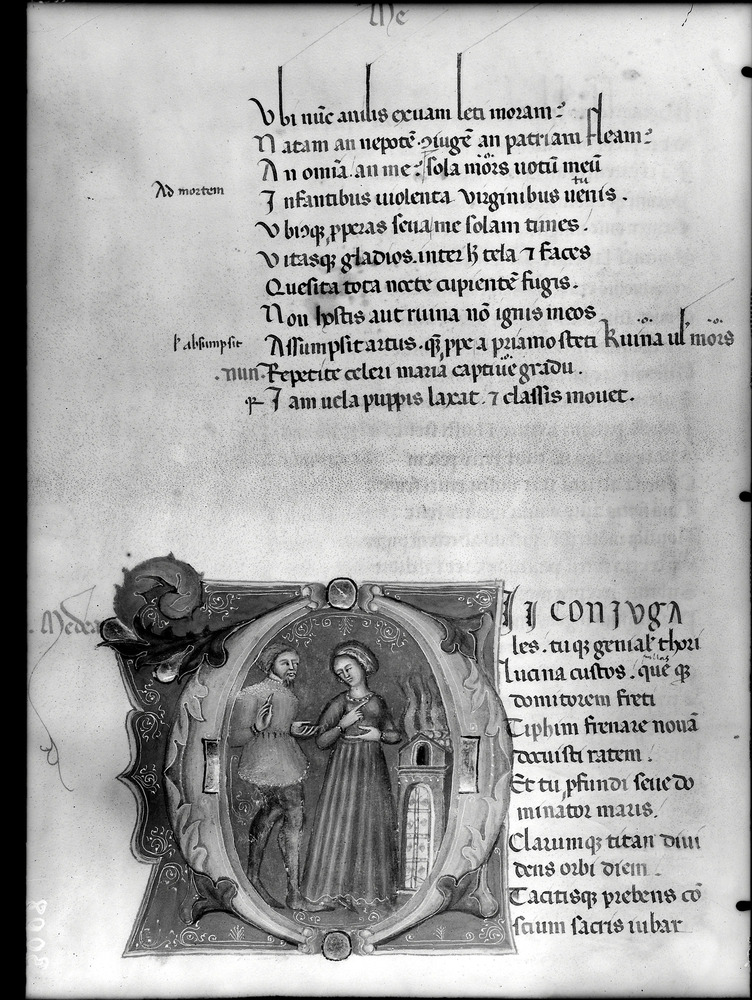 Me
Vbi nūc anilis exuam leti moram?
Natam an nepotē. ꝯiugē an patriam fleam?
An omīa. an me? sola mors uotū meū
Ad mortem
Infantibus uiolenta virginibus uenis. tu
Vbiqꝫ ꝓperas seua me solam times.
Vitasqꝫ gladios. inter h̄ tela ⁊ faces
Quesita tota nocte cupientē fugis.
Non hostis aut ruina nō ignis meos
l' absumpsit
Assumpsit artus. qꝫ ꝓpe a priamo steti Ruina ul' mors
.nun. Repetite celeri maria captiue gradu.
Iam uela puppis laxat. ⁊ classis mouet.
. Medea
DII CONIVGA
les. tuqꝫ genial' thori
lucina custos. que qꝫ
domitorem freti
Tiphim frenare nouā
docuisti ratem.
Et tu ꝓfundi seue do
minator maris.
Clarumqꝫ titan diui
dens orbi diem.
Tacitisqꝫ prebens cō
scium sacris iubar
8008